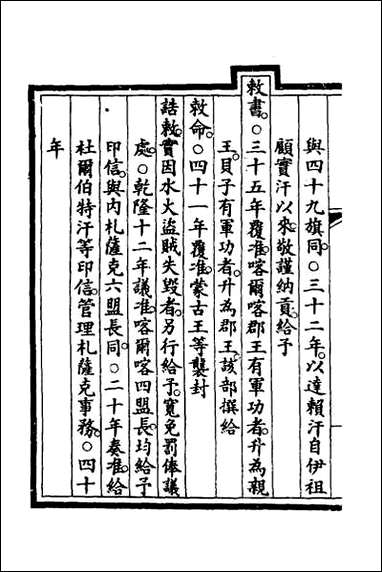 與四十九旗同。○三十二年。以達賴汗自伊祖
顧實汗以來。敬謹納貢。給予
敕書。○三十五年覆准。喀爾喀郡王有軍功者。升為親
王。貝子有軍功者。升為郡王。該部撰給
敕命。○四十一年覆准。蒙古王等襲封
誥敕。實因水火盜賊失毀者。另行給予。寬免罰俸議
處。○乾隆十二年議准。喀爾喀四盟長。均給予
印信。與內札薩克六盟長同。○二十年奏准。給
杜爾伯特汗等印信。管理札薩克事務。○四十
年